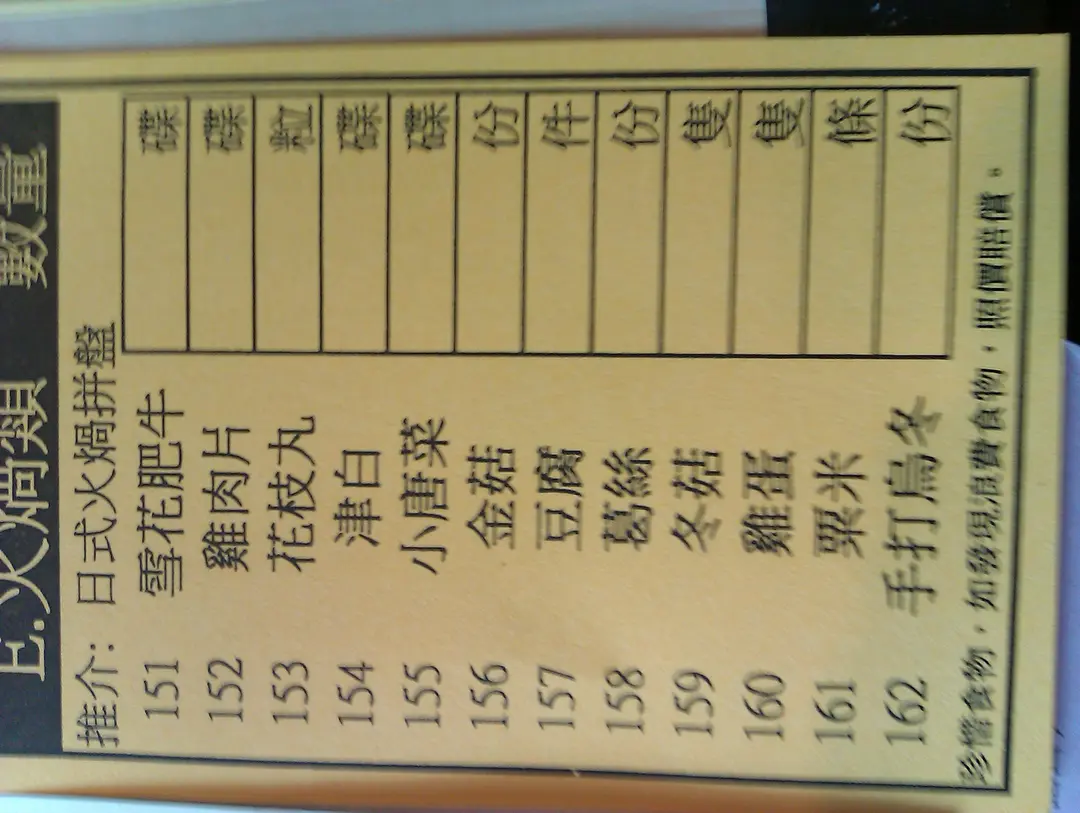 E.火煱類 數量
推介: 日式火煱拼盤
151 雪花肥牛 碟
152 雞肉片 碟
153 花枝丸 粒
154 津白 碟
155 小唐菜 碟
156 金菇 份
157 豆腐 件
158 葛絲 份
159 冬菇 隻
160 雞蛋 隻
161 粟米 條
162 手打烏冬 份
珍惜食物，如發現浪費食物，照價賠償。